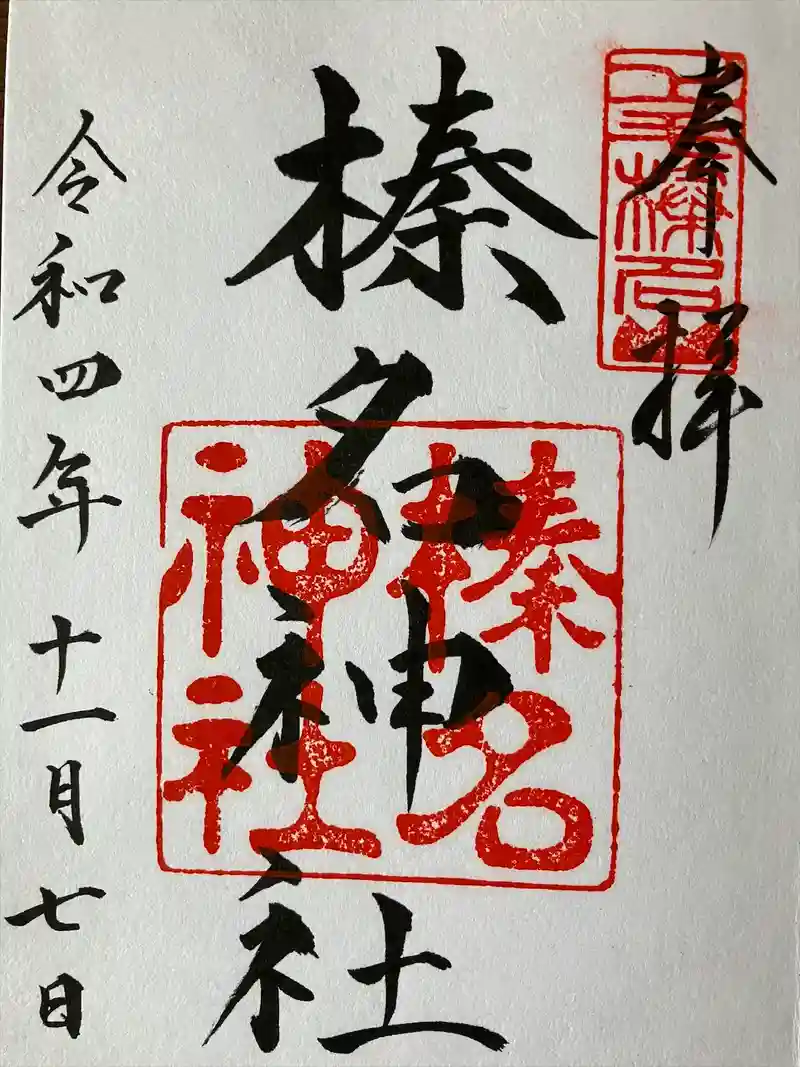 奉拝
上毛榛名山
榛名神社
榛名
神社
令和四年十一月七日